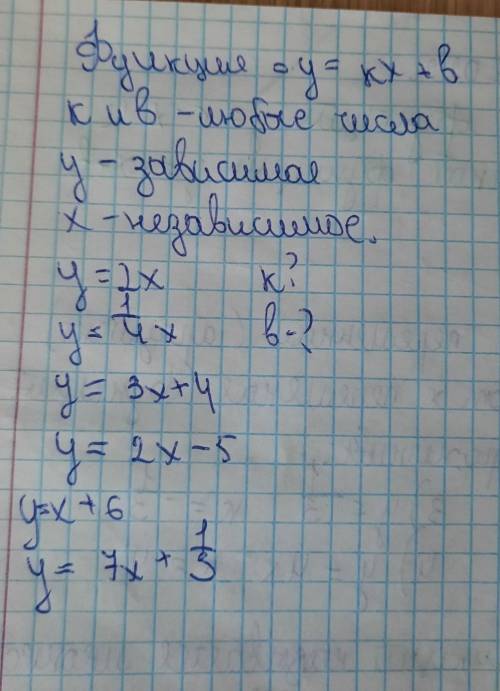 Функция - y = кx + в
к и в - любые числа
y - зависимая
x - независимое.
y = 2x к?
y = 1/4 x в-?
y = 3x + 4
y = 2x - 5
y = x + 6
y = 7x + 1/3